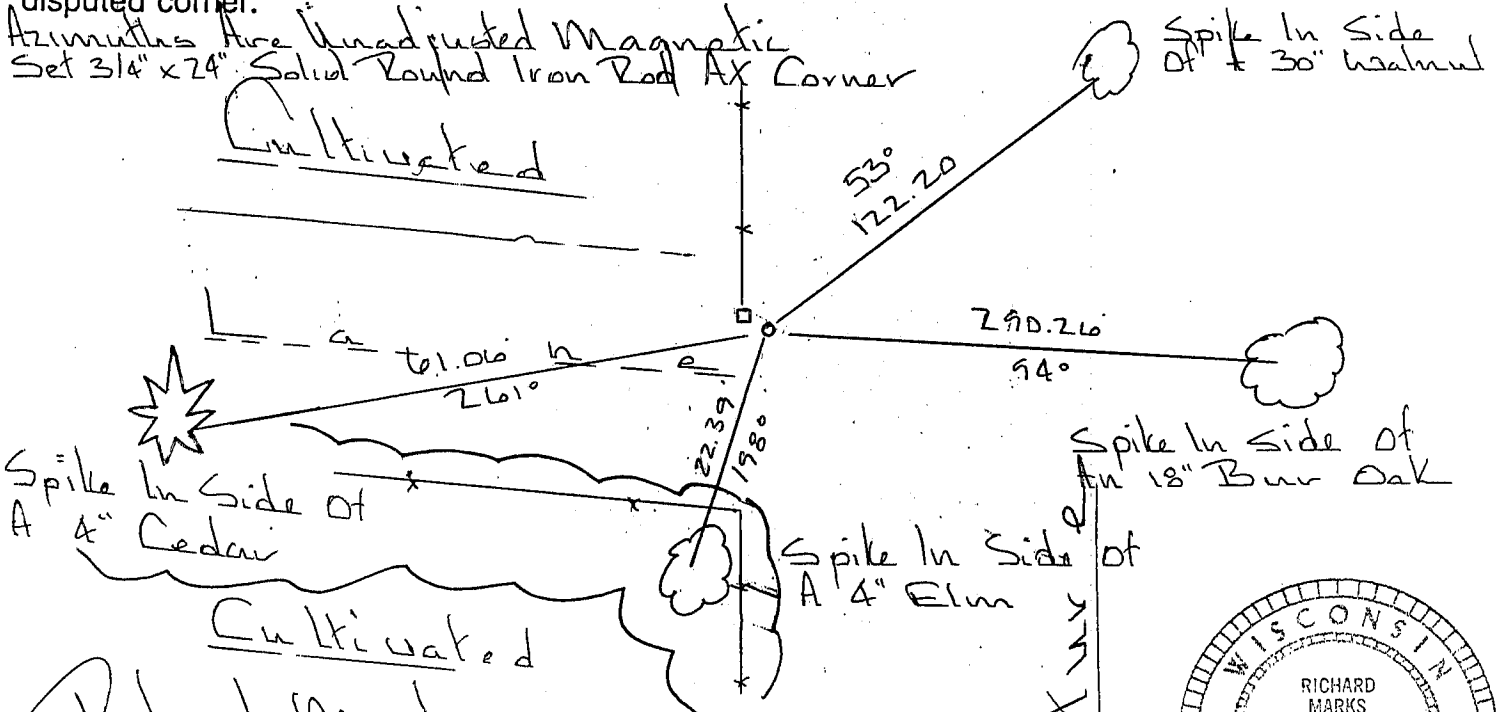 disputed corner.
Azimuths Are Unadjusted Magnetic
Set 3/4" x 24" Solid Round Iron Rod At Corner
Spike In Side
Of ± 30" Walnut
Cultivated
53°
122.20
Lane
61.06
261°
290.26
94°
22.39
198°
Spike In Side Of
A 4" Cedar
Spike In Side Of
An 18" Burr Oak
Spike In Side Of
A 4" Elm
Cultivated
WISCONSIN
RICHARD
MARKS